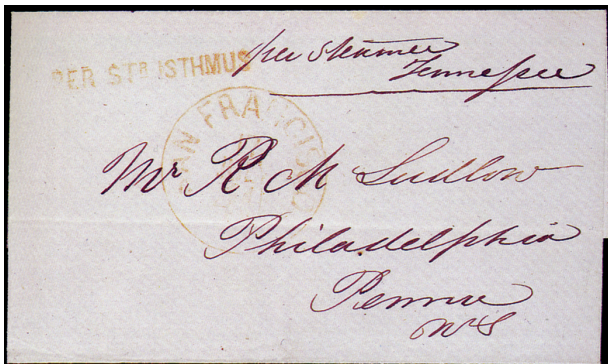 PER STR ISTHMUS
per Steamer
Tennessee
SAN FRANCISCO
Mr R M Ludlow
Philadelphia
Penna